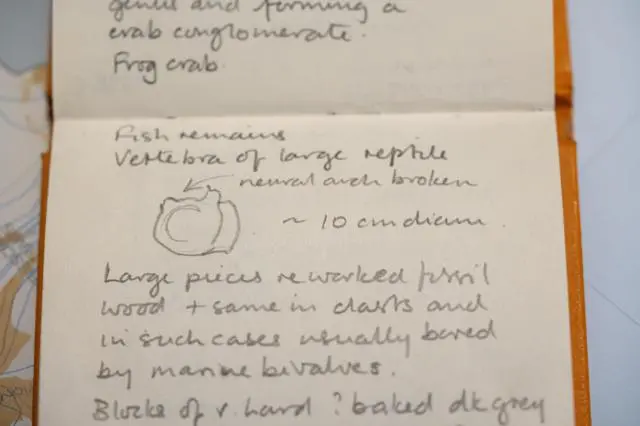 genus and forming a
crab conglomerate.
Frog crab.
Fish remains
Vertebra of large reptile
neural arch broken
~ 10 cm diam.
Large pieces reworked fossil
wood + same in clasts and
in such cases usually bored
by marine bivalves.
Blocks of v. hard ? baked dk grey